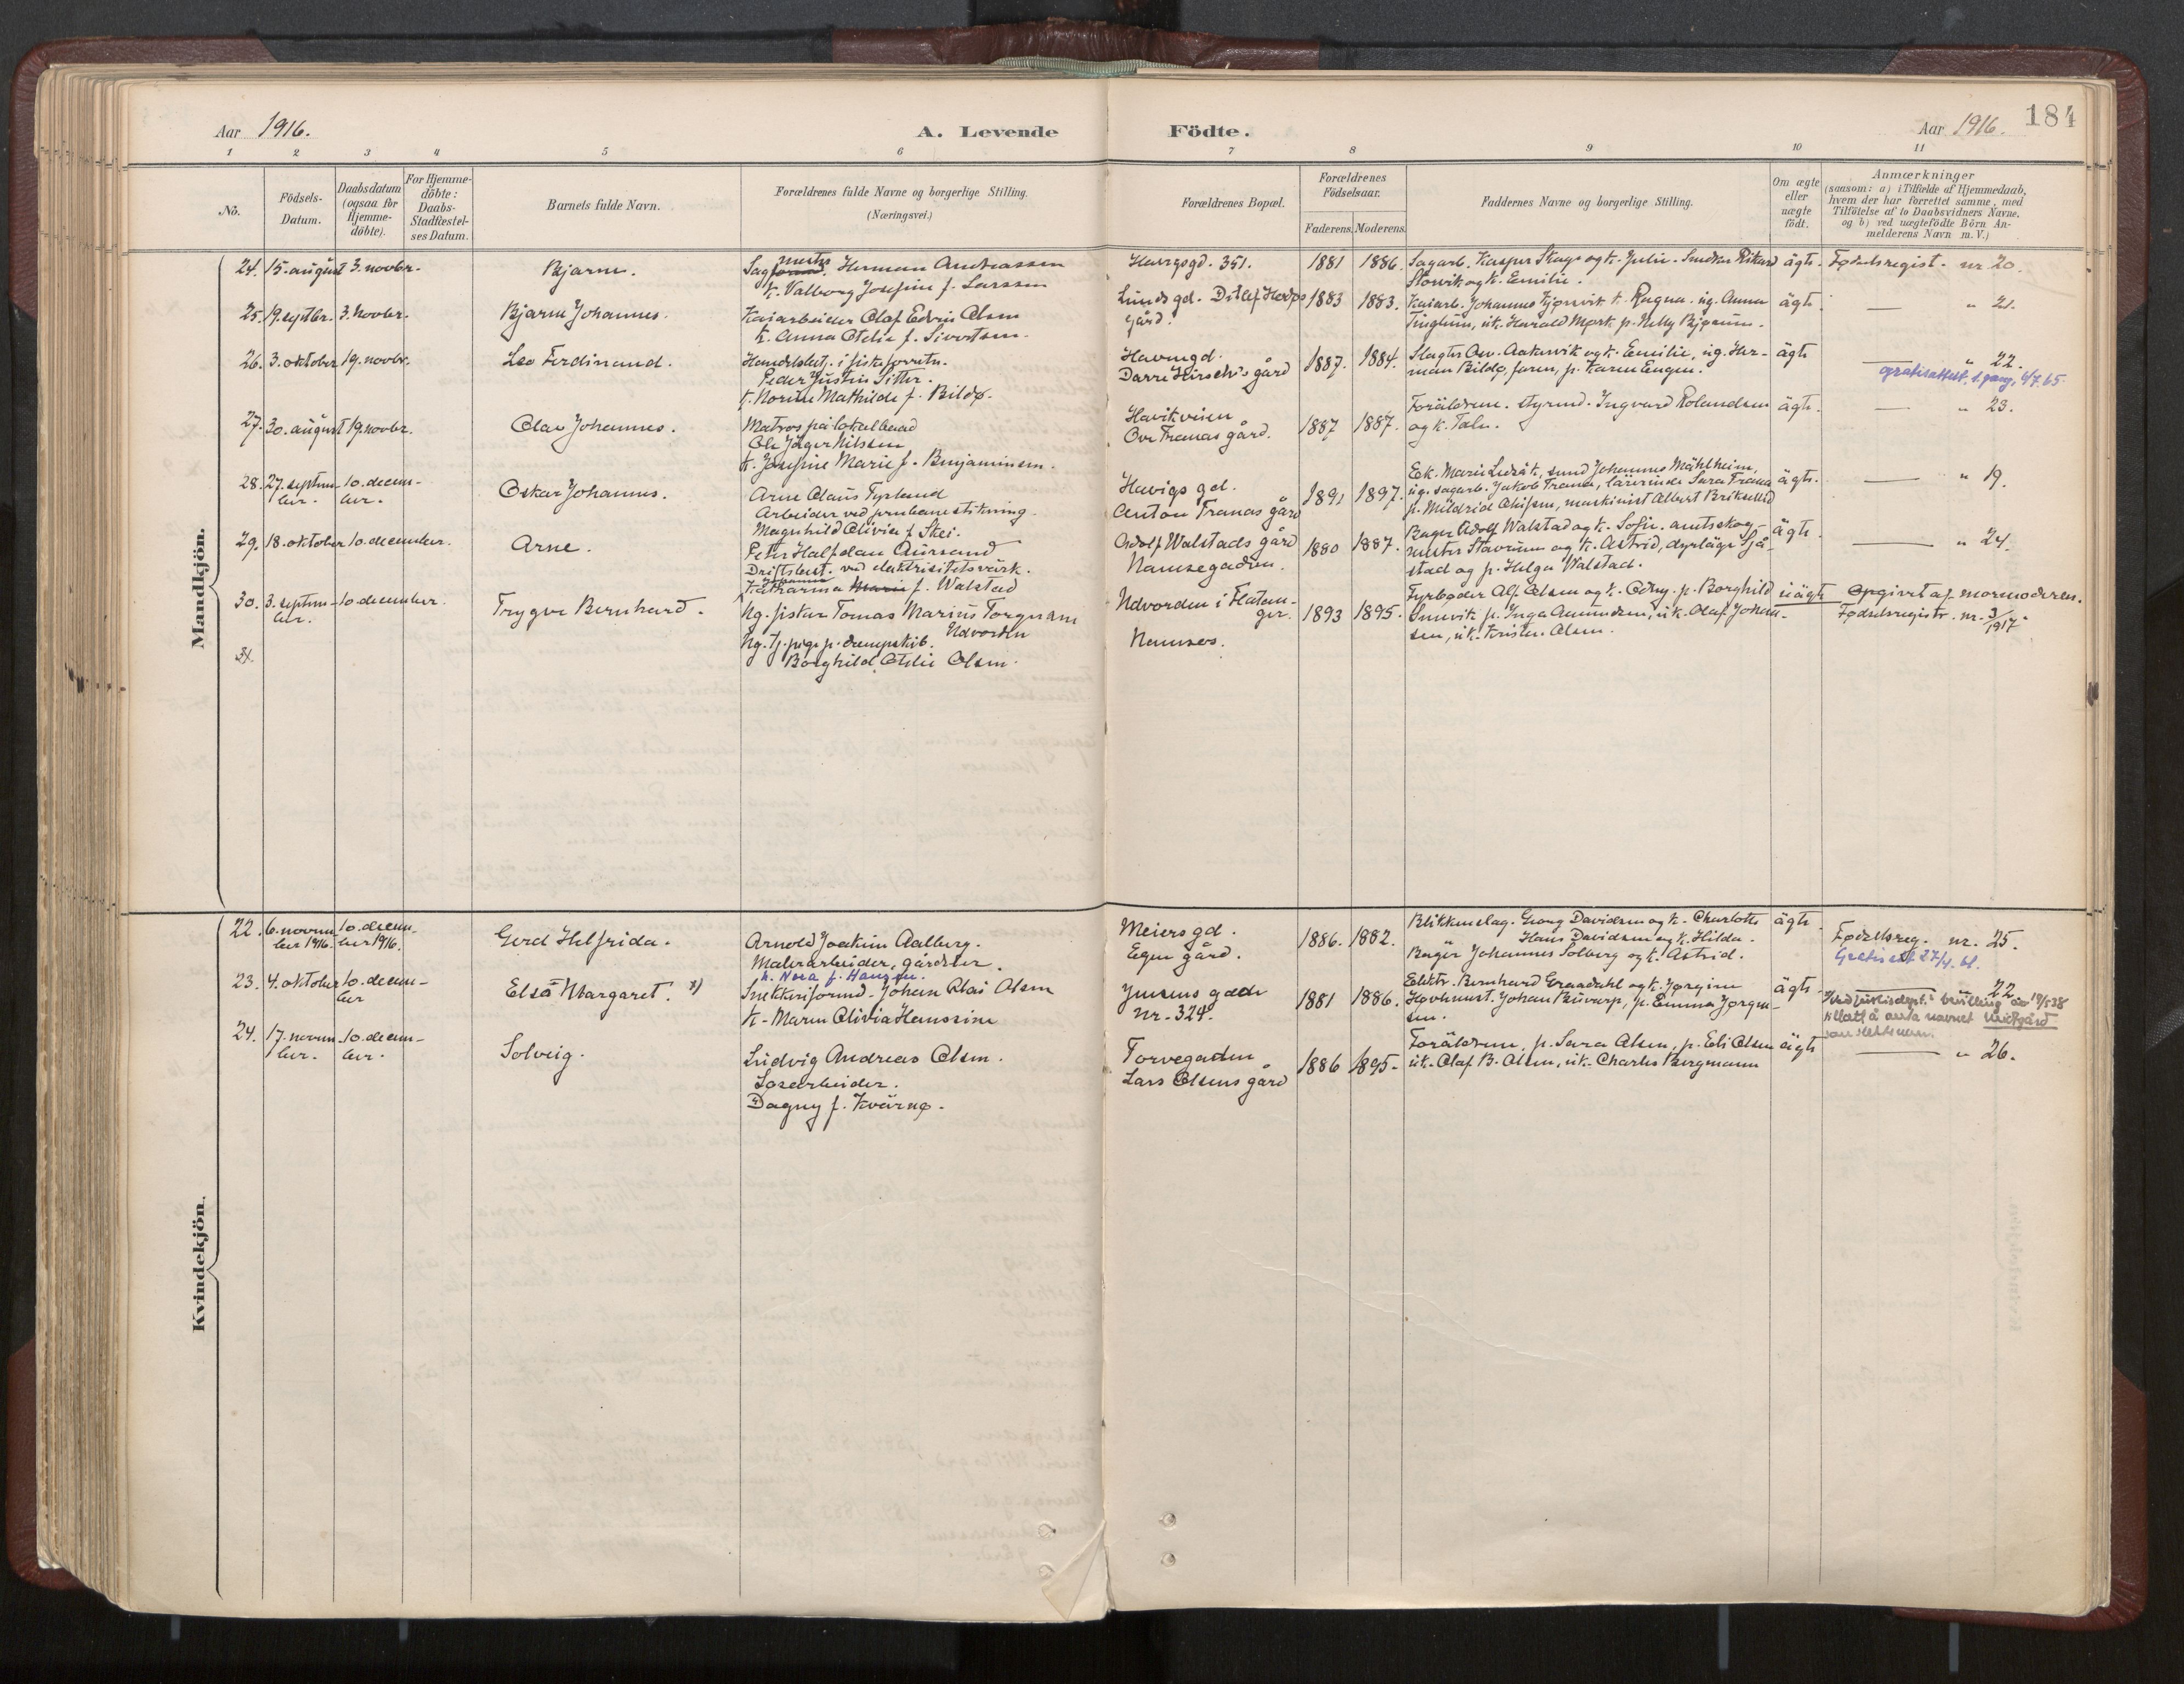 184
Aar 1916. A. Levende Födte. Aar 1916.
1 2 3 4 5 6 7 8 9 10 11
No.
Födsels-
Datum.
Daabsdatum
(ogsaa for
Hjemme-
döbte).
For Hjemme-
döbte:
Daabs-
Stadfæstel-
ses Datum.
Barnets fulde Navn.
Forældrenes fulde Navne og borgerlige Stilling.
(Næringsvei.)
Forældrenes Bopæl.
Forældrenes
Födselsaar.
Faderens. Moderens.
Faddernes Navne og borgerlige Stilling.
Om ægte
eller
uægte
født.
Anmærkninger
(saasom: a) i Tilfælde af Hjemmedaab,
hvem der har forrettet samme, med
Tilföielse af to Daabsvidners Navne,
og b) ved uægtefödte Börn An-
melderens Navn m. V.)
Mandkjön.
24. 15. august 3. novbr. Bjarne.
mester
Sagformd. Herman Andreassen
k. Valborg Josefine f. Larssen
Havigsgd. 351. 1881 1886.
Sagarb. Kasper Skage og k. Julie. Snedker Rikard
og k. Emilie.
ägte. Fødselsregist. nr. 20.
25. 19. septbr. 3. novbr. Bjarne Johannes.
Kaiarbeider Olaf Edvin Olsen
k. Anna Otelie f. Sivertsen.
Lunds gd. Ditlef Hodøs
gård. 1883 1883.
Kaiarb. Johannes Gjørvik k. Ragna. ug. Anna
Tinglum, uk. Harald Mørk p. Nelly Bjørum.
ägte — " 21.
26. 3. oktober 19. novbr. Leo Ferdinand.
Handelsbest. i fiskeforretn.
Peder Justin Sitter.
k. Norine Mathilde f. Bildø.
Havnegd.
Darre Hirsch's gård 1887. 1884.
Slagter Osv. Aakervik og k. Emilie, ug. Her-
man Bildø, faren, p. Karen Engen.
ägte — " 22.
gratisattest, 1. gang, 4/7. 65.
27. 30. august 19. novbr. Olav Johannes.
Matros på lokalbaad
Ole Jäger Nilssen
k. Josefine Marie f. Benjaminsen.
Havikveien
Ove Tranas gård. 1887 1887.
Foräldrene. styrmd. Ingvard Rolandsen
og k. Talie.
ägte. — " 23.
28. 27. septem-
ber. 10. decem-
ber. Oskar Johannes.
Arne Olaus Tyrland
Arbeider ved jernbanestikning.
Magnhild Olivie f. Skei.
Havigs gd.
Anton Tranas gård 1891 1897.
Ek. Marie Ledså k, smed Johannes Mählheim,
ug. sagarb. Jakob Trana, lärerinde Sara Trana
p. Mildrid Olissen, maskinist Albert Briksellid
ägte. — " 19.
29. 18. oktober 10. december. Arne.
Peter Halfdan Aursand
Driftsbest. ved elektrisitetsvärk.
Johanna
Katharina Marie f. Walstad
Adolf Walstads gård
Namsegaden. 1880 1887.
Bager Adolf Walstad og k. Sofie. amtsskog-
mester Stavrum og k. Astrid, dyrläge Sjå-
stad og p. Helga Walstad.
ägte. — " 24.
30. 3. septem-
ber. 10. december. Trygve Bernhard.
Ug. fisker Tomas Marius Torgersen
Utvorden
Ug. tj. pige p. dampskib.
Borghild Otelie Olsen.
Utvorden i Flatan-
ger. 1893 1895.
Namsos.
Fyrbøder Alf Olsen og k. Odny. p. Borghild
p. Inga Amundsen, uk. Olaf Johan-
sen, uk. Krister Olsen.
uägte Opgivet af mormoderen.
Fødselsregistr. nr. 3/1917.
31.
Kvindekjön.
22. 6. novem-
ber 1916. 10. decem-
ber 1916. Gerd Helfrida.
Arnold Joakim Aalberg.
Malerarbeider, gårdeier.
k. Nora f. Hanssen.
Meiers gd.
Egen gård. 1886. 1882.
Blikkenslag. Georg Davidsen og k. Charlotte
Hans Davidsen og k. Hilda.
Bager Johannes Solberg og k. Astrid.
ägte. Fødselsreg. nr. 25.
Gratisatt 27/4. 61.
23. 4. oktober 10. decem-
ber Elsa Margaret. x)
Snekkerformd. Johan Olai Olsen
k. Maren Olivia Hanssine
Jensens gade
nr. 324. 1881 1886.
Elektr. Bernhard Graadahl og k. Jørgine
Høvlmest. Johan Buvarp, p. Emma Jørgen-
sen.
ägte. — " 22
x) Ved justisdept.s bevilling av 19/5 38
tillatt å anta navnet Midtgård
som slektsnavn.
24. 17. novem-
ber. 10. decem-
ber. Solveig.
Ludvig Andreas Olsen.
Losearbeider.
Dagny f. Kvärnø.
Torvegaden
Lars Olsens gård 1886 1895.
Foräldrene, p. Sara Olsen, p. Edi Olsen
uk. Olaf B. Olsen, uk. Charles Bergmann
ägte — " 26.